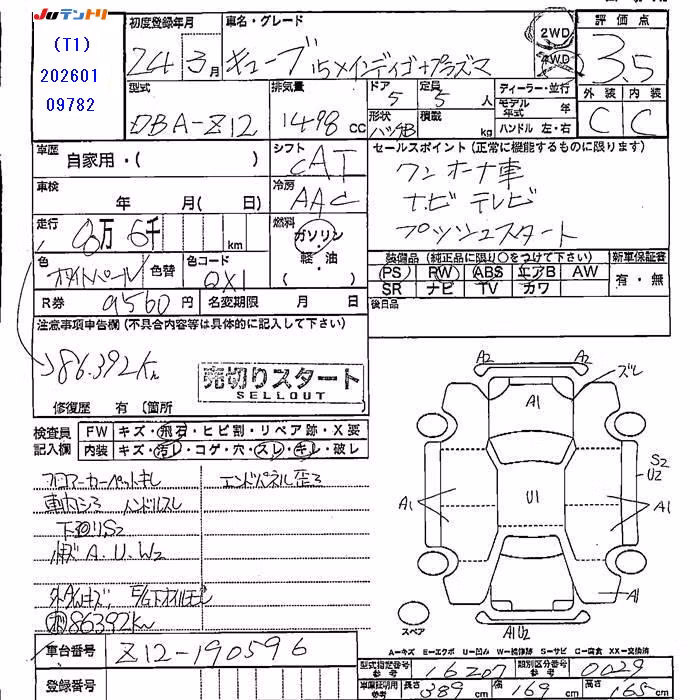 JUテントリ
(T1)
202601
09782
初度登録年月
24 3月
車名・グレード
キューブ 15×インディゴ+プラズマ
2WD
4WD
評価点
3.5
外装 内装
C C
型式
DBA-Z12
排気量
1498 cc
ドア
5
定員
5 人
形状
積載
kg
ディーラー・並行
モデル年式 年
ハンドル 左・右
車歴
自家用・( )
シフト
CAT
セールスポイント (正常に機能するものに限ります)
ワンオーナ車
ナビ テレビ
プッシュスタート
車検
年 月( 日)
冷房
AAC
走行
8万 6千 km
燃料
ガソリン
・
軽・油
( )
色
ホワイトパール
色替
色コード
QX1
装備品 (純正品に限り○をつけて下さい)
新車保証書
PS PW ABS エアB AW
SR ナビ TV カワ
有・無
R券 9560円
名変期限 月 日
後日品
注意事項申告欄 (不具合内容等は具体的に記入して下さい)
86.392km
売切りスタート
SELLOUT
修復歴 有 (箇所 )
検査員記入欄
FW キズ・飛石・ヒビ割・リペア跡・X要
内装 キズ・汚レ・コゲ・穴・スレ・キレ・破レ
フロアーカーペットキレ
エンドパネル歪ミ
車内シミ ハンドルスレ
下廻りS2
A.U.W2
86392km
車台番号
Z12-190596
登録番号
A2 A2
ズレ
A1
S2
U2
A1 U1 A1
A1
A1U2
スペア
A=キズ E=エクボ U=凹ミ W=板修跡 S=サビ C=腐食 XX=交換済
型式指定番号 参考 16207
類別区分番号 参考 0029
車庫証明用 参考 長さ 389 cm 幅 169 cm 高さ 165 cm